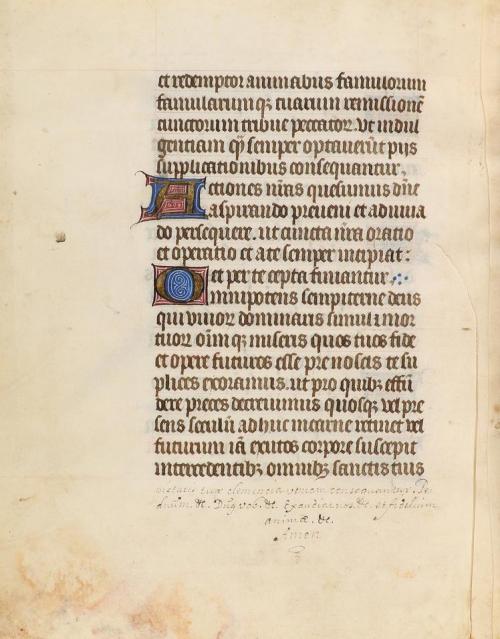 et redemptor animabus famulorum
famularum qꝫ tuarum remissionē
cunctorum tribue peccatoꝝ. Vt indul
gentiam qͣꝫ semper optauerūt pijs
supplicationibus consequantur.
Actiones nr̄as quesumus dn̄e
aspirando preueni et adiuua
do persequere. ut cuncta nr̄a oratio
et operatio et a te semper incipiat:
et per te cepta finiantur.
Omnipotens sempiterne deus
qui viuoꝝ dominaris simul ⁊ mor
tuoꝝ oīm qꝫ miseris quos tuos fide
et opere futuros esse prenoscis te su
plices exoramus. ut pro quibꝫ effū
dere preces decreuimus quosqꝫ vel pre
sens seculū adhuc in carne retinet vel
futurum iā exutos corpore suscepit
intercedentibꝫ omnibꝫ sanctis tuis
pietatis tuæ clemencia veniam consequantur. Per
dn̄um. &c. Dn̄s vob. &c. Exaudiat nos. &c. et fidelium
animæ. &c.
Amen